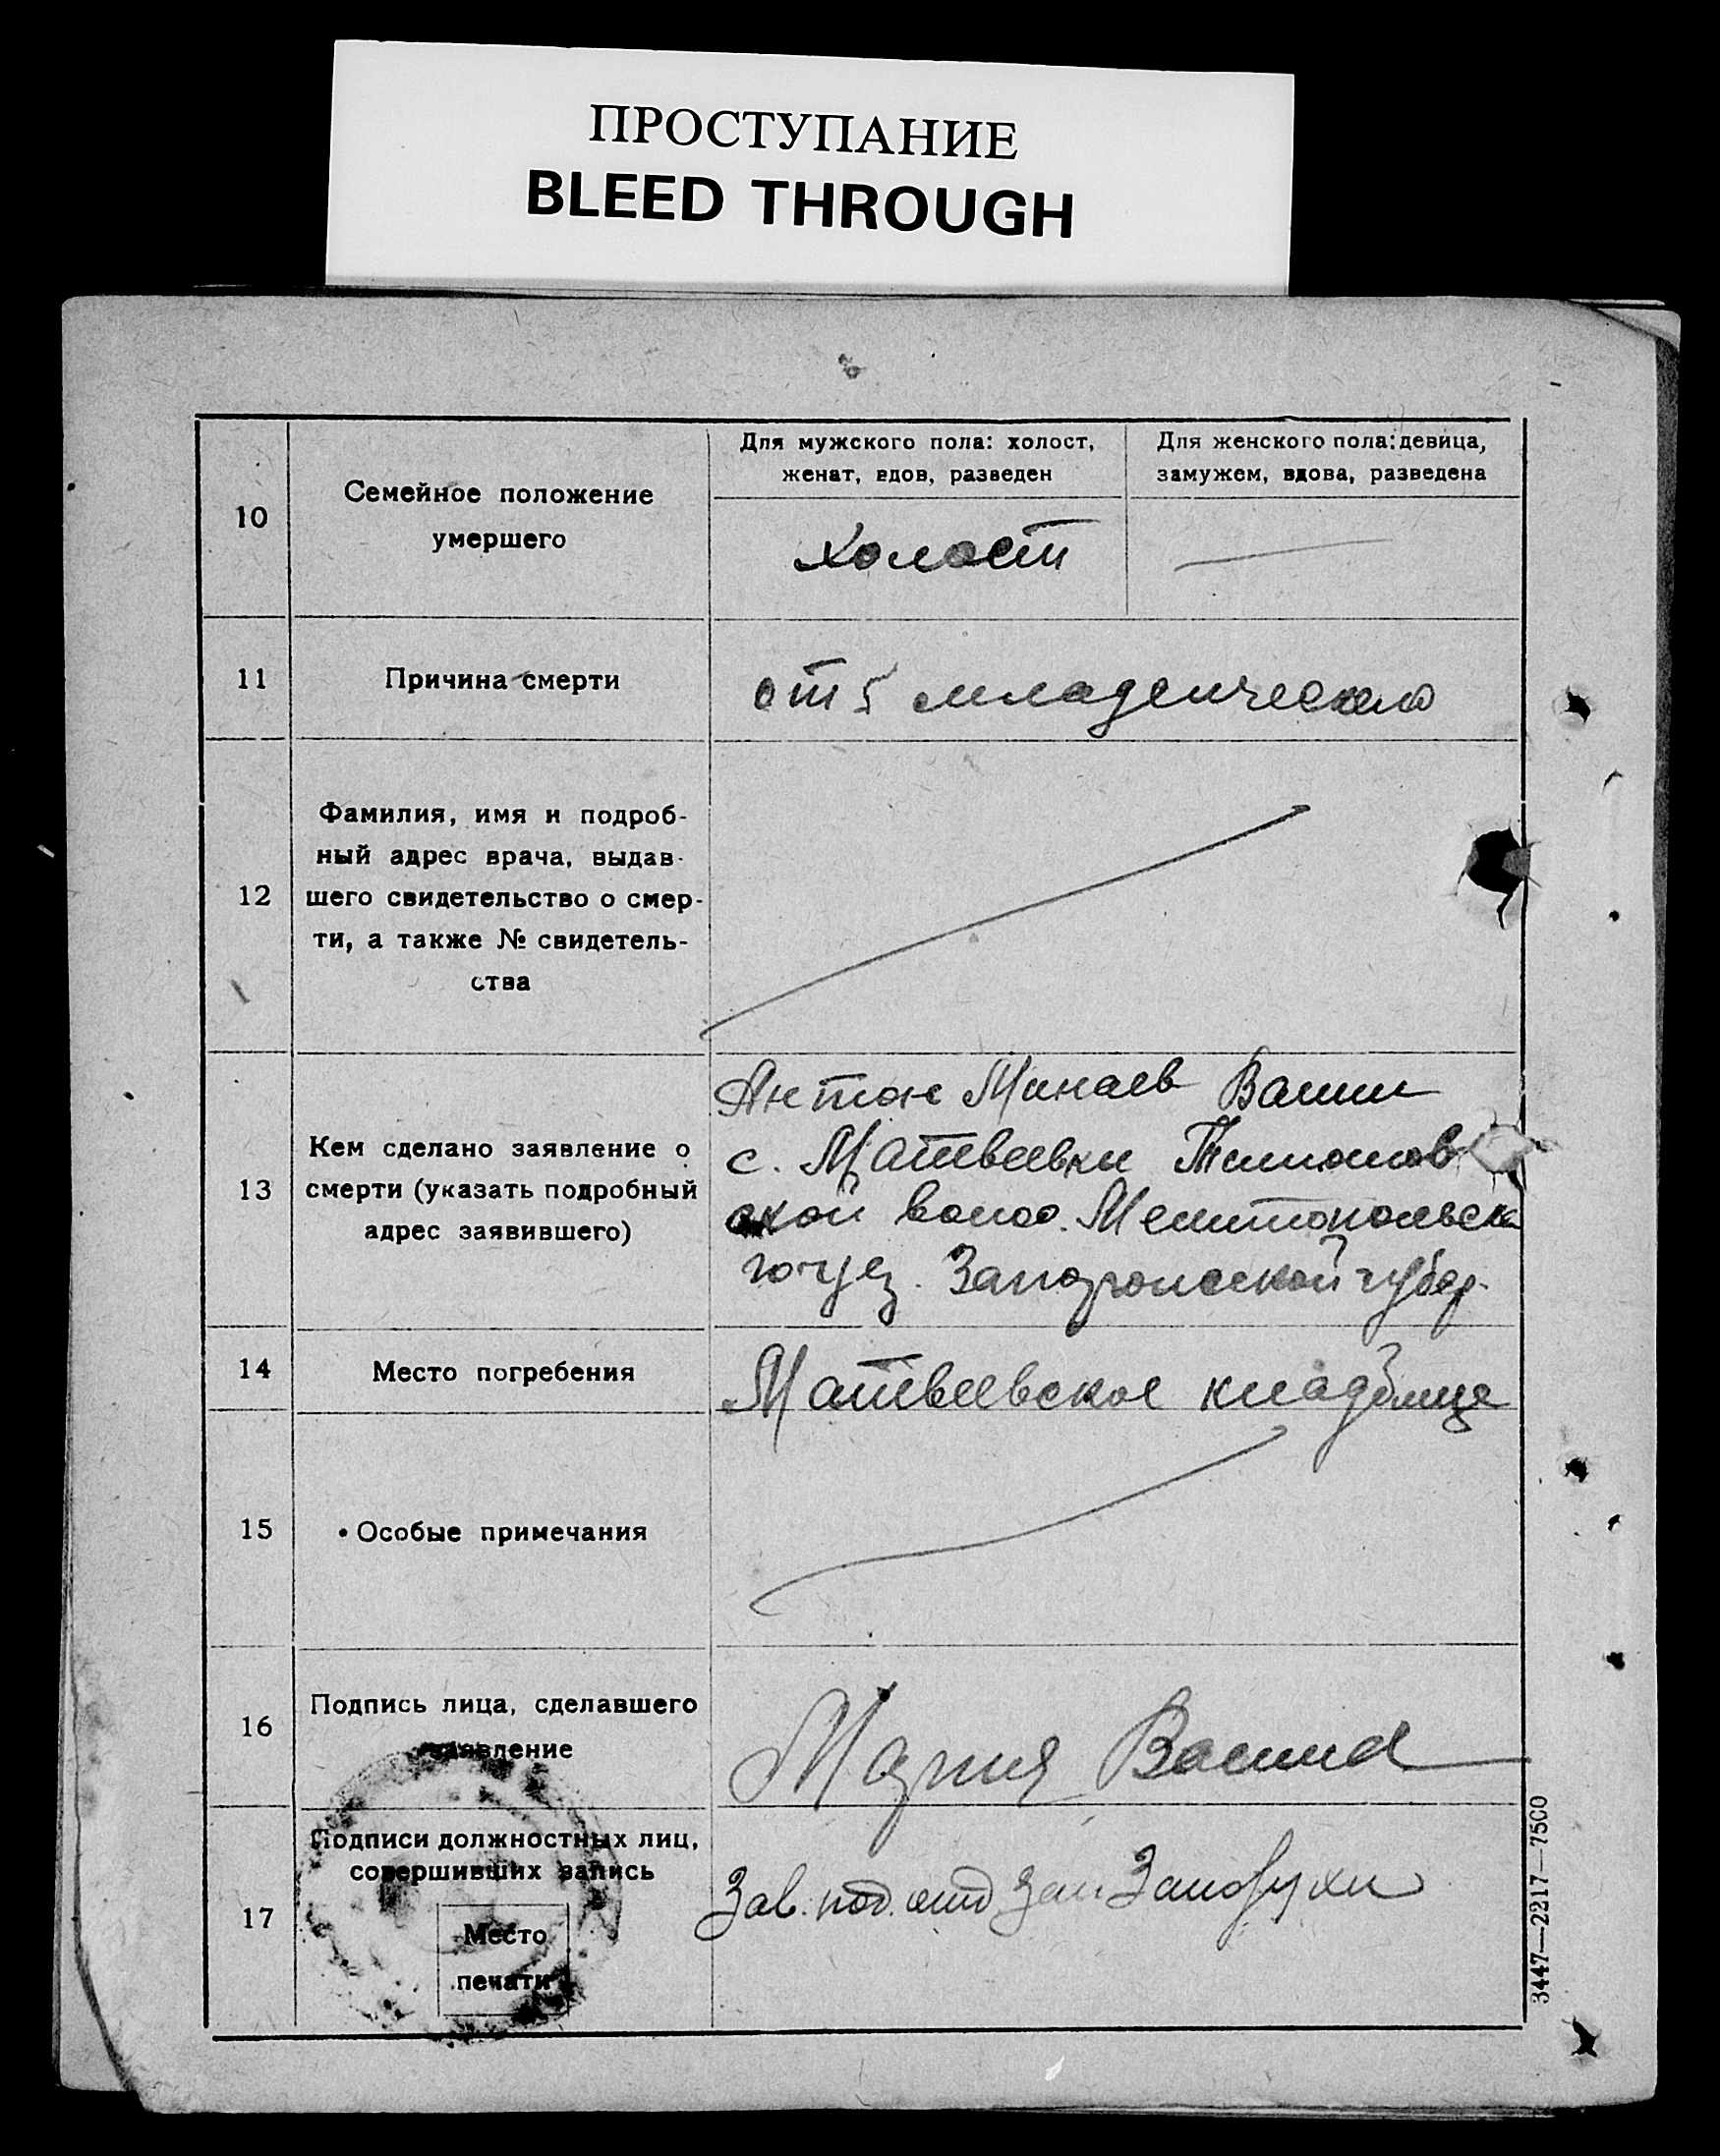 ПРОСТУПАНИЕ
BLEED THROUGH
10
Семейное положение
умершего
Для мужского пола: холост,
женат, вдов, разведен
Для женского пола: девица,
замужем, вдова, разведена
холост
11
Причина смерти
отъ младенческаго
12
Фамилия, имя и подроб-
ный адрес врача, выдав-
шего свидетельство о смер-
ти, а также № свидетель-
ства
13
Кем сделано заявление о
смерти (указать подробный
адрес заявившего)
Антон Минаев
с. Матвеевки
ской волос. Мелитопольска
го уез. Запорожской губер.
14
Место погребения
Матвеевское кладбище
15
Особые примечания
16
Подпись лица, сделавшего
заявление
Мария
17
Подписи должностных лиц,
совершивших запись
Место
печати
Зав. под. отд
3447—2217—7500